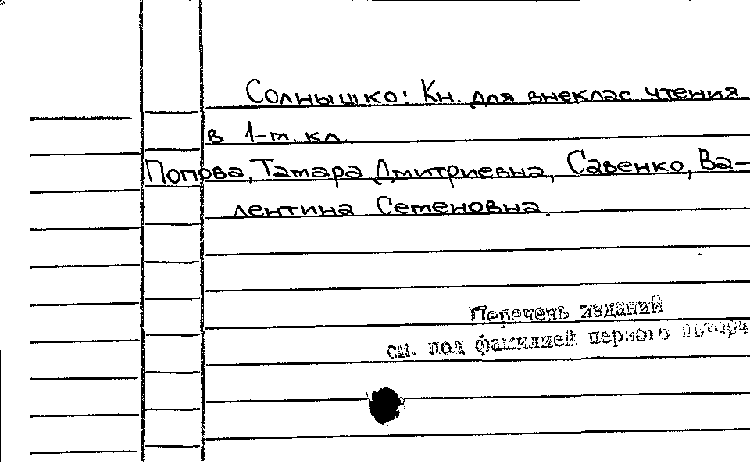 Солнышко: Кн. для внеклас чтения
в 1-м кл.
Попова, Тамара Дмитриевна, Савенко, Ва-
лентина Семеновна.
Перечень изданий
см. под фамилией первого автора